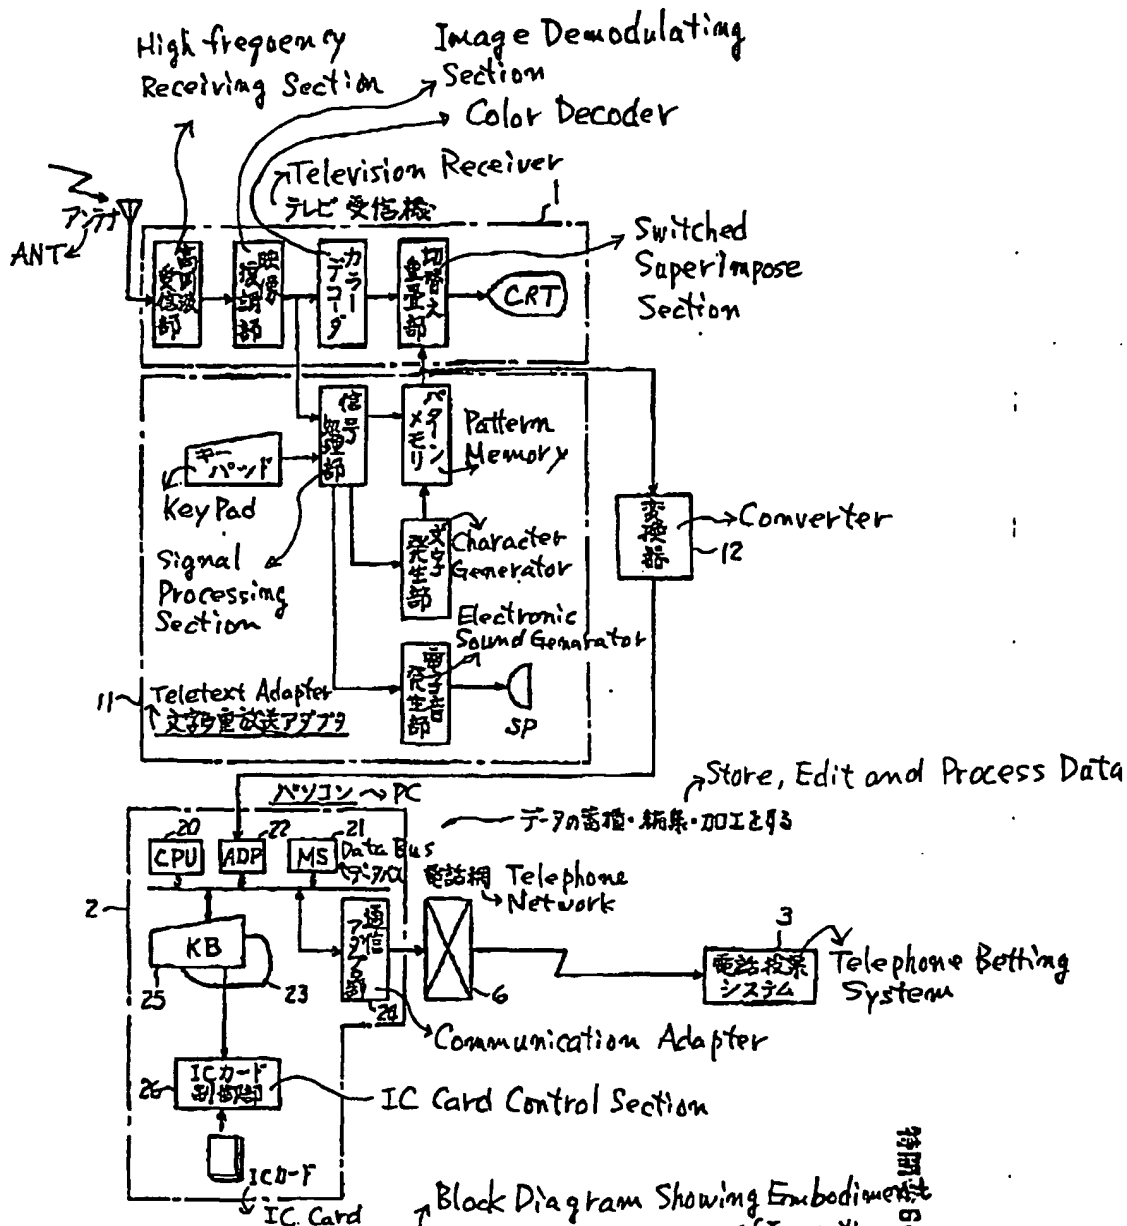 High frequency
Receiving Section
Image Demodulating
Section
Color Decoder
Television Receiver
テレビ受信機
1
アンテナ
ANT
高周波
受信部
映像
復調部
カラー
デコーダ
切替え
重畳部
CRT
Switched
Superimpose
Section
信号
処理部
パターン
メモリ
Pattern
Memory
キー
パッド
Key Pad
Signal
Processing
Section
文字
発生部
Character
Generator
変換器
Converter
12
Electronic
Sound Genarator
電子音
発生部
SP
11
Teletext Adapter
文字多重放送アダプタ
Store, Edit and Process Data
パソコン PC
データの蓄積・編集・加工をする
20
22
21
CPU
ADP
MS
Data Bus
データバス
電話網
Telephone
Network
2
KB
25
23
通信
アダプタ部
24
6
3
電話投票
システム
Telephone Betting
System
Communication Adapter
26
ICカード
制御部
IC Card Control Section
ICカード
IC Card
Block Diagram Showing Embodiment